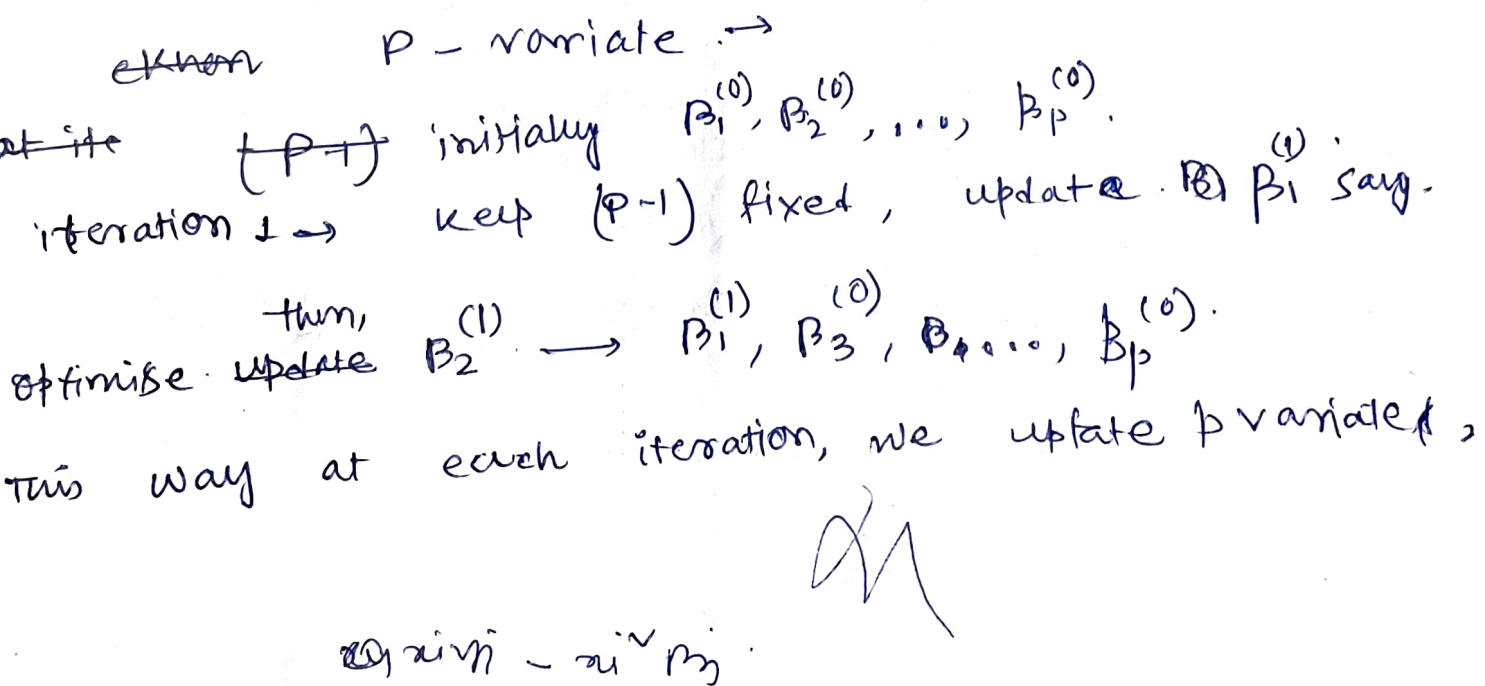 ekhon P - variate →
at ite (p-1) initially β₁⁽⁰⁾, β₂⁽⁰⁾, ..., βp⁽⁰⁾.
iteration 1 → keep (p-1) fixed, update β₁⁽¹⁾ say.
then,
optimise update β₂⁽¹⁾ → β₁⁽¹⁾, β₃⁽⁰⁾, ..., βp⁽⁰⁾.
This way at each iteration, we upfate p variates,
xiyi - xi² βj.